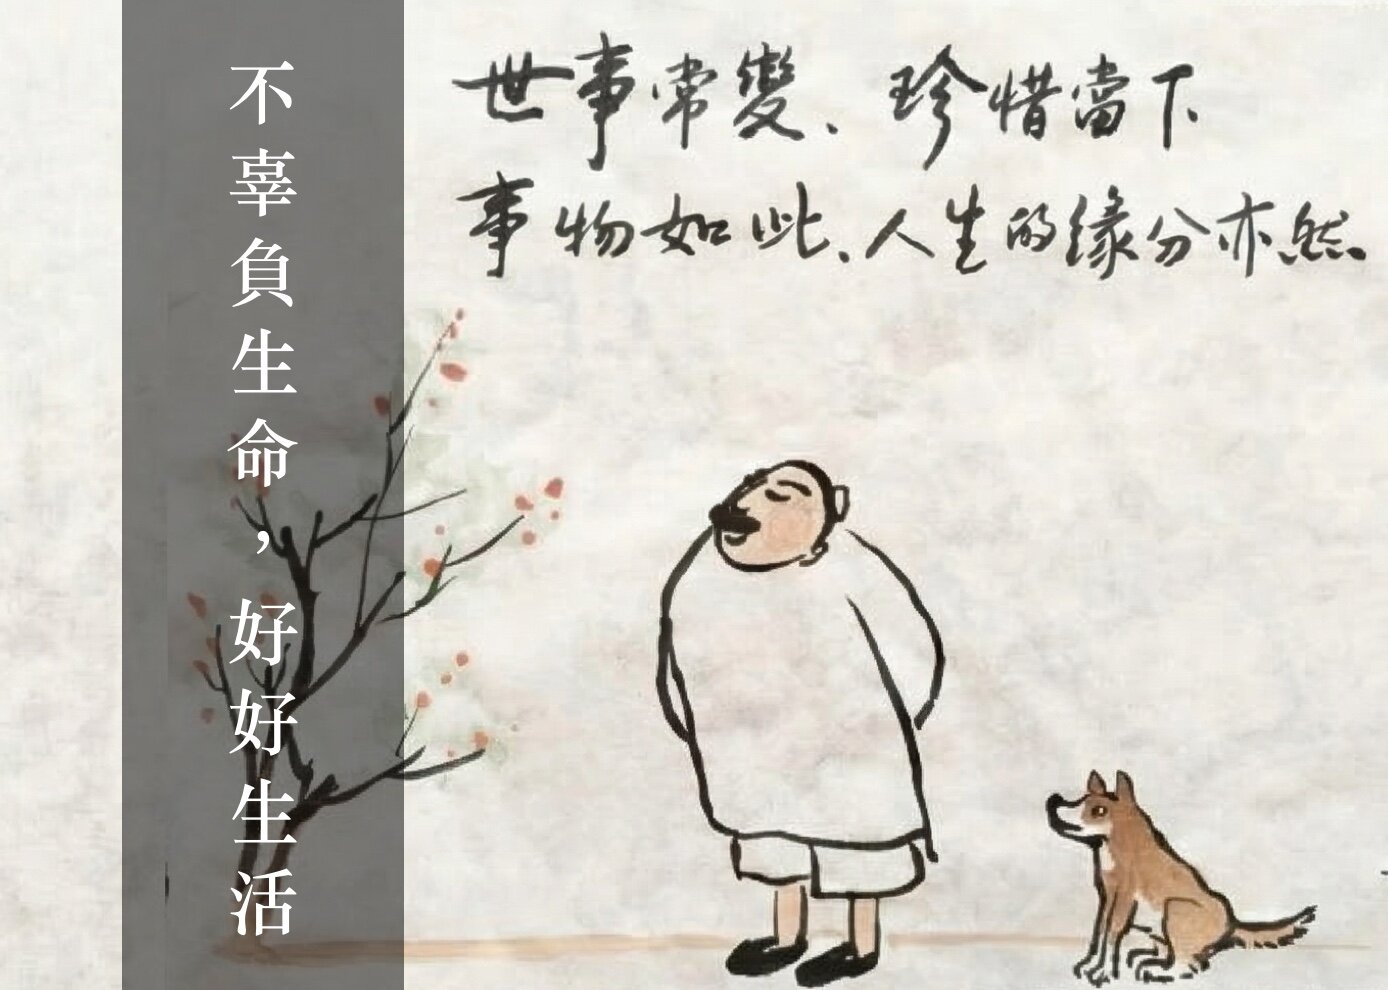 世事常變、珍惜當下
事物如此、人生的緣分亦然、
不辜負生命，好好生活